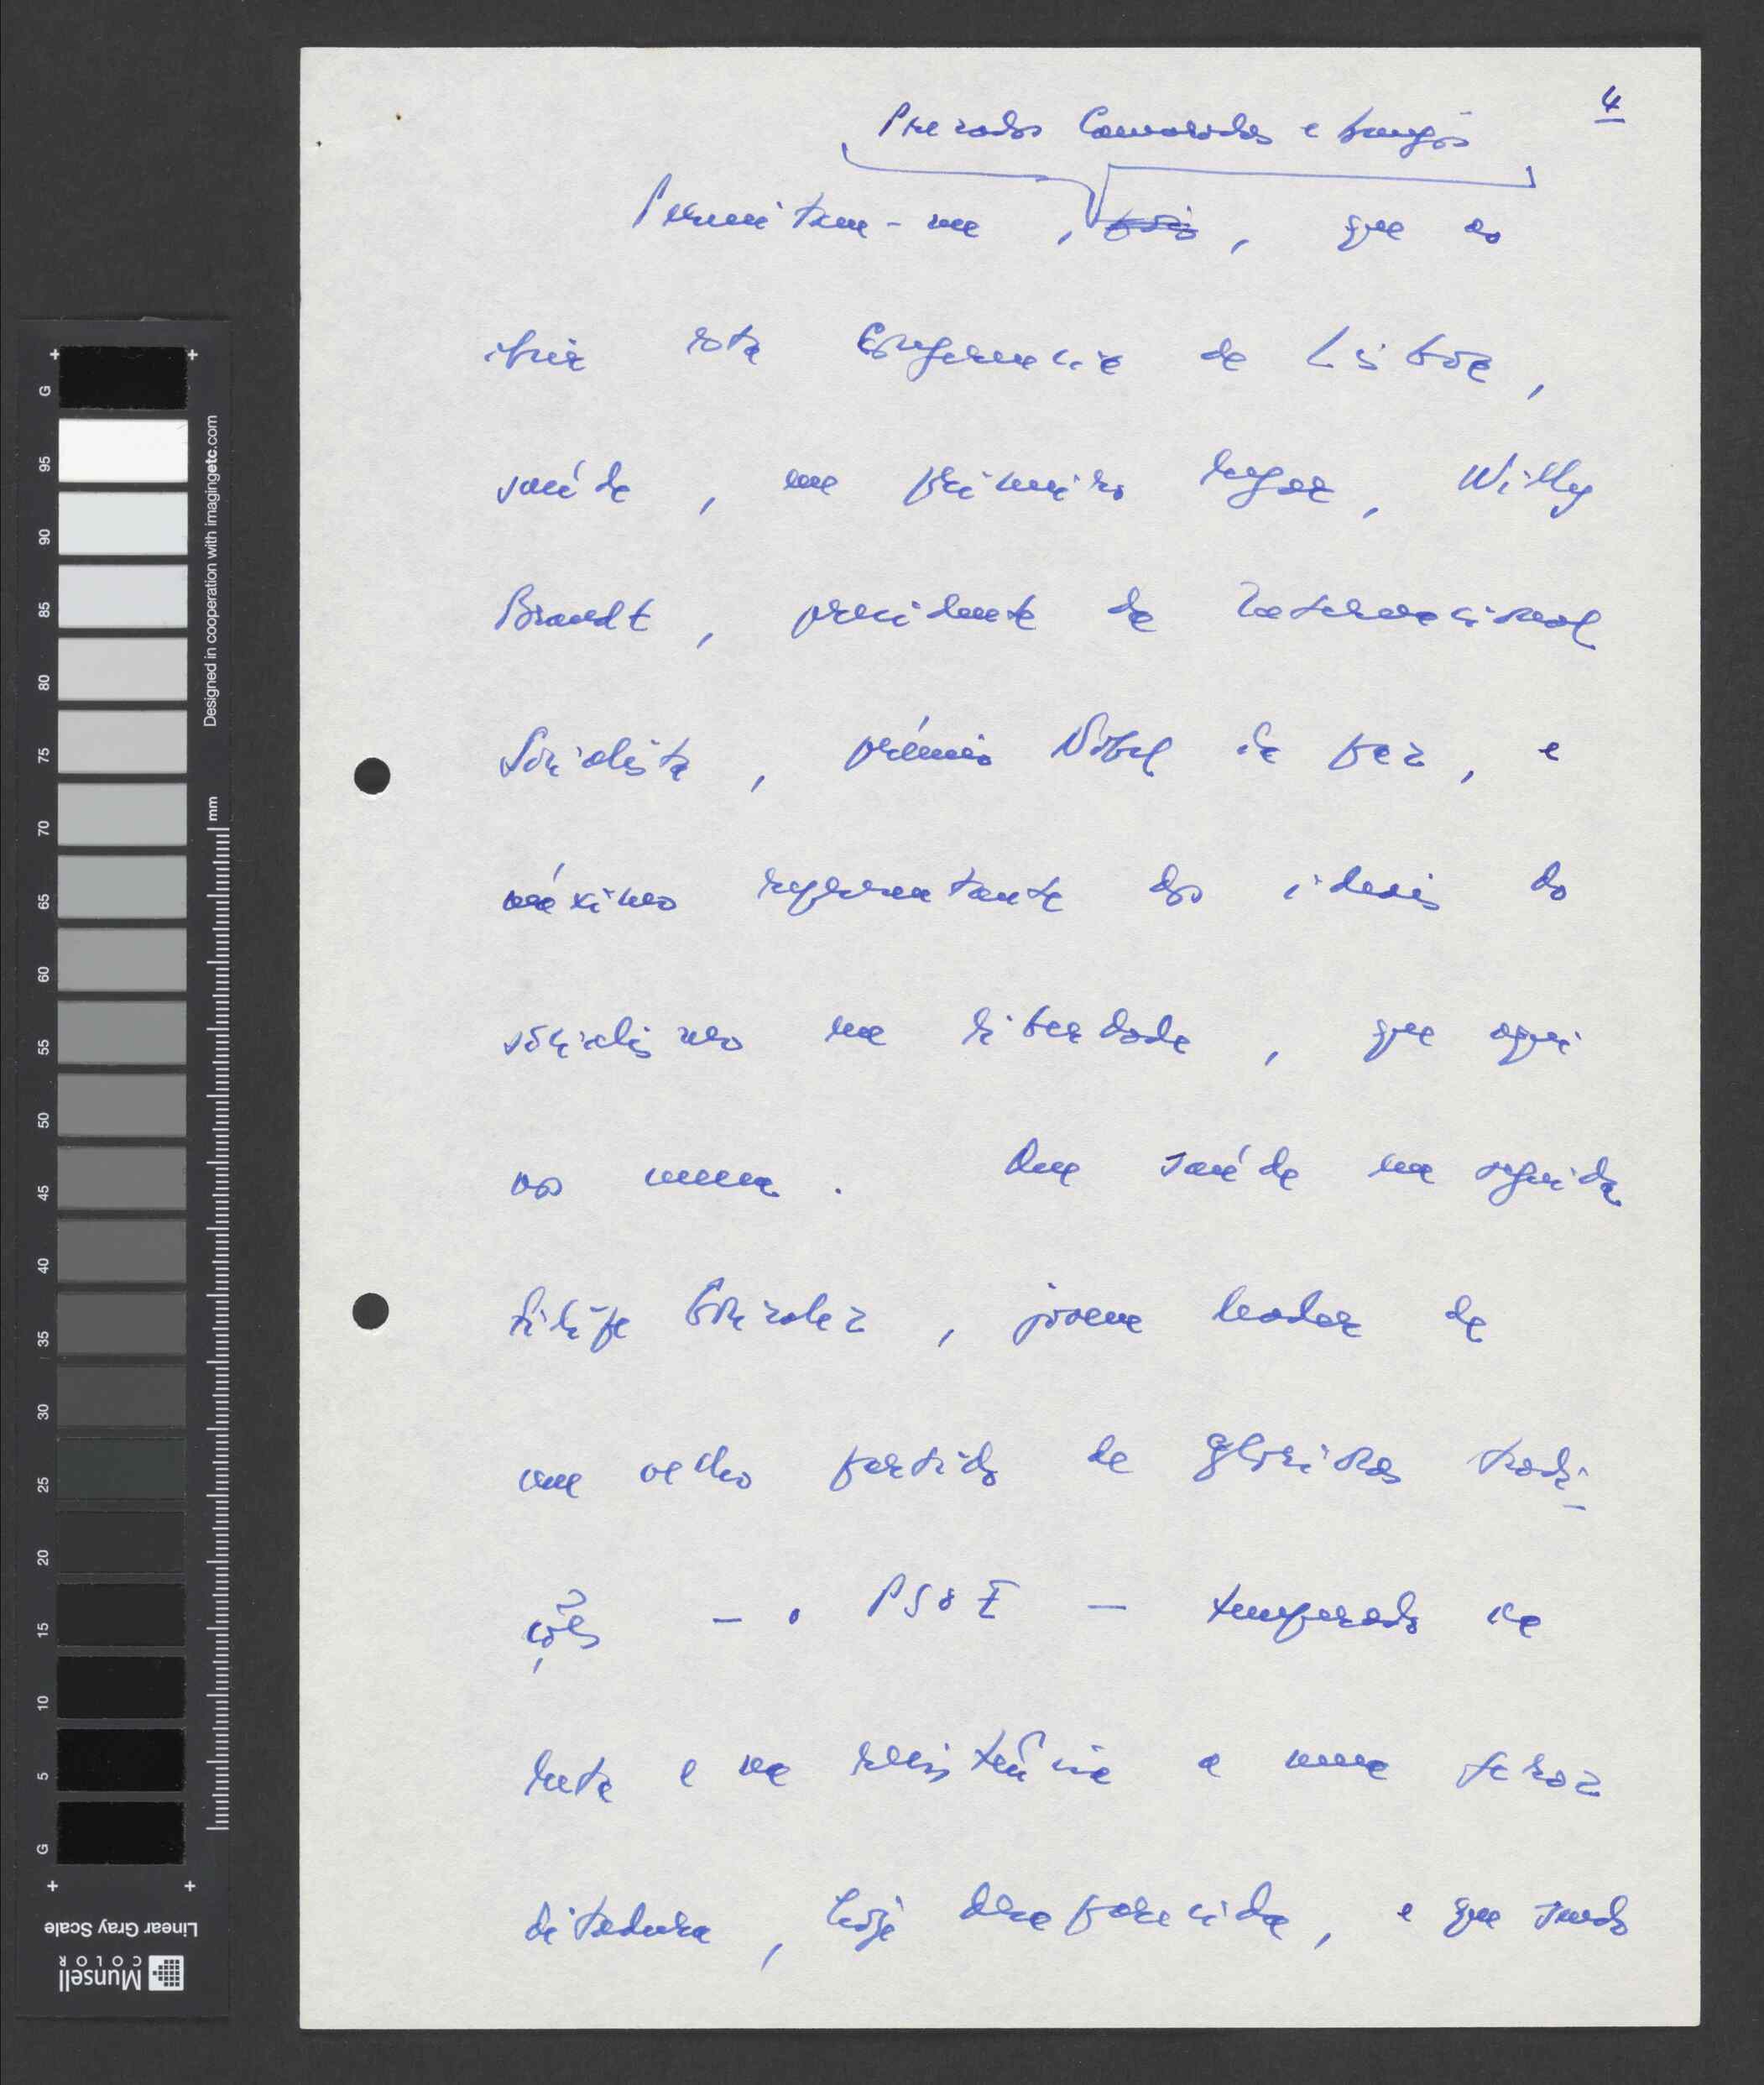 4
Prezados Camaradas e Amigos
Permitam-me, pois, que ao
abrir esta Conferencia de Lisboa,
saúde, em primeiro lugar, Willy
Brandt, presidente da Internacional
Socialista, prémio Nobel da paz, e
máximo representante dos ideais do
socialismo em liberdade, que aqui
nos reune. Que saúde em seguida
Filipe Gonzalez, jovem leader de
um velho partido de gloriosas tradi-
ções – o PSOE – temperado na
luta e na resistência a uma feroz
ditadura, hoje desaparecida, e que sendo
G
95
90
85
80
75
70
65
60
55
50
45
40
35
30
25
20
15
10
5
G
Designed in cooperation with imagingetc.com
mm
Linear Gray Scale
Munsell
COLOR